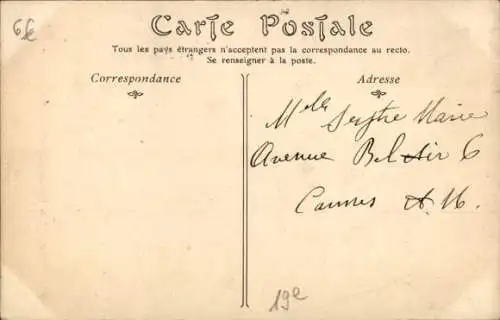 6€
Carte Postale
Tous les pays étrangers n'acceptent pas la correspondance au recto.
Se renseigner à la poste.
Correspondance
Adresse
Mlle Marie
Avenue Bel Air 6
Cannes A. M.
19e